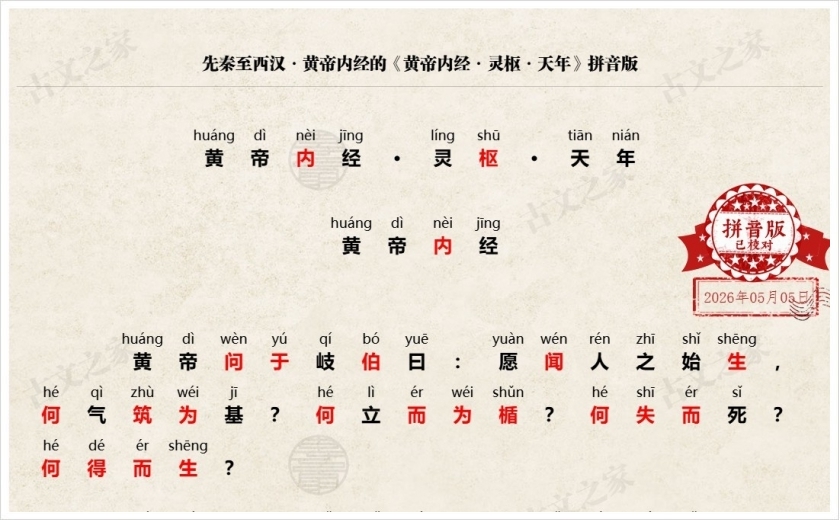 先秦至西汉·黄帝内经的《黄帝内经·灵枢·天年》拼音版
huáng dì nèi jīng líng shū tiān nián
黄帝内经·灵枢·天年
huáng dì nèi jīng
黄帝内经
拼音版
已校对
2026年05月05日
huáng dì wèn yú qí bó yuē yuàn wén rén zhī shǐ shēng
黄帝问于岐伯曰：愿闻人之始生，
hé qì zhù wéi jī hé lì ér wéi shǔn hé shī ér sǐ
何气筑为基？何立而为楯？何失而死？
hé dé ér shēng
何得而生？
古文之家
古文之家
古文之家
古文之家
古文之家
古文之家